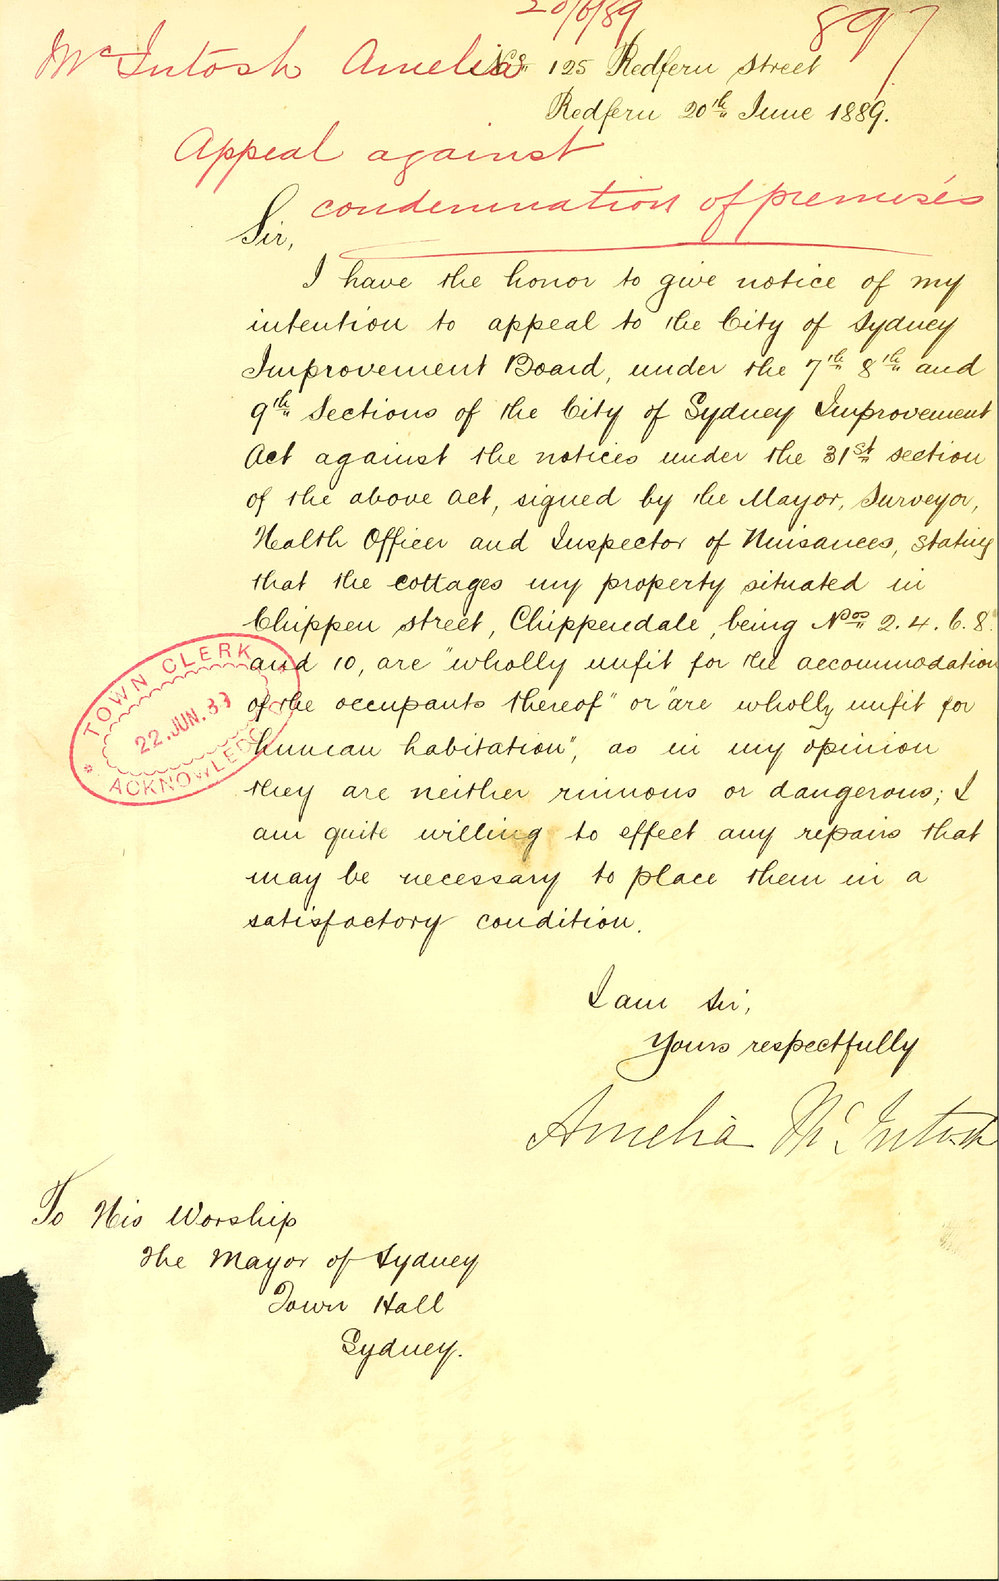 20/6/89
897
McIntosh Amelia
No. 125 Redfern Street
Redfern 20th June 1889.
Appeal against
condemnation of premises
Sir,
I have the honor to give notice of my
intention to appeal to the City of Sydney
Improvement Board, under the 7th 8th and
9th Sections of the City of Sydney Improvement
Act against the notices under the 31st section
of the above Act, signed by the Mayor, Surveyor,
Health Officer and Inspector of Nuisances, stating
that the cottages my property situated in
Chippen street, Chippendale, being Nos 2. 4. 6. 8.
and 10, are "wholly unfit for the accommodation
of the occupants thereof" or "are wholly unfit for
human habitation", as in my opinion
they are neither ruinous or dangerous; I
am quite willing to effect any repairs that
may be necessary to place them in a
satisfactory condition.
TOWN CLERK
22. JUN. 89
ACKNOWLEDGED
I am Sir,
Yours respectfully
Amelia McIntosh
To His Worship
The Mayor of Sydney
Town Hall
Sydney.